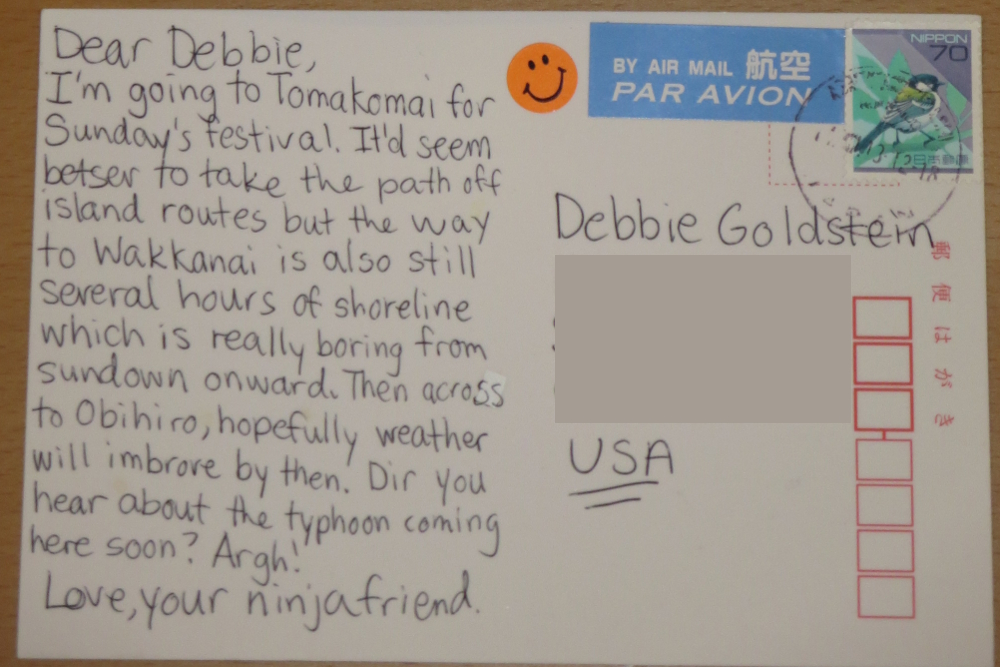 Dear Debbie,
I'm going to Tomakomai for
Sunday's festival. It'd seem
betser to take the path off
island routes but the way
to Wakkanai is also still
several hours of shoreline
which is really boring from
sundown onward. Then across
to Obihiro, hopefully weather
will imbrove by then. Dir you
hear about the typhoon coming
here soon? Argh!
Love, your ninjafriend.
BY AIR MAIL 航空
PAR AVION
NIPPON
70
日本郵便
Debbie Goldstein
USA
郵便はがき